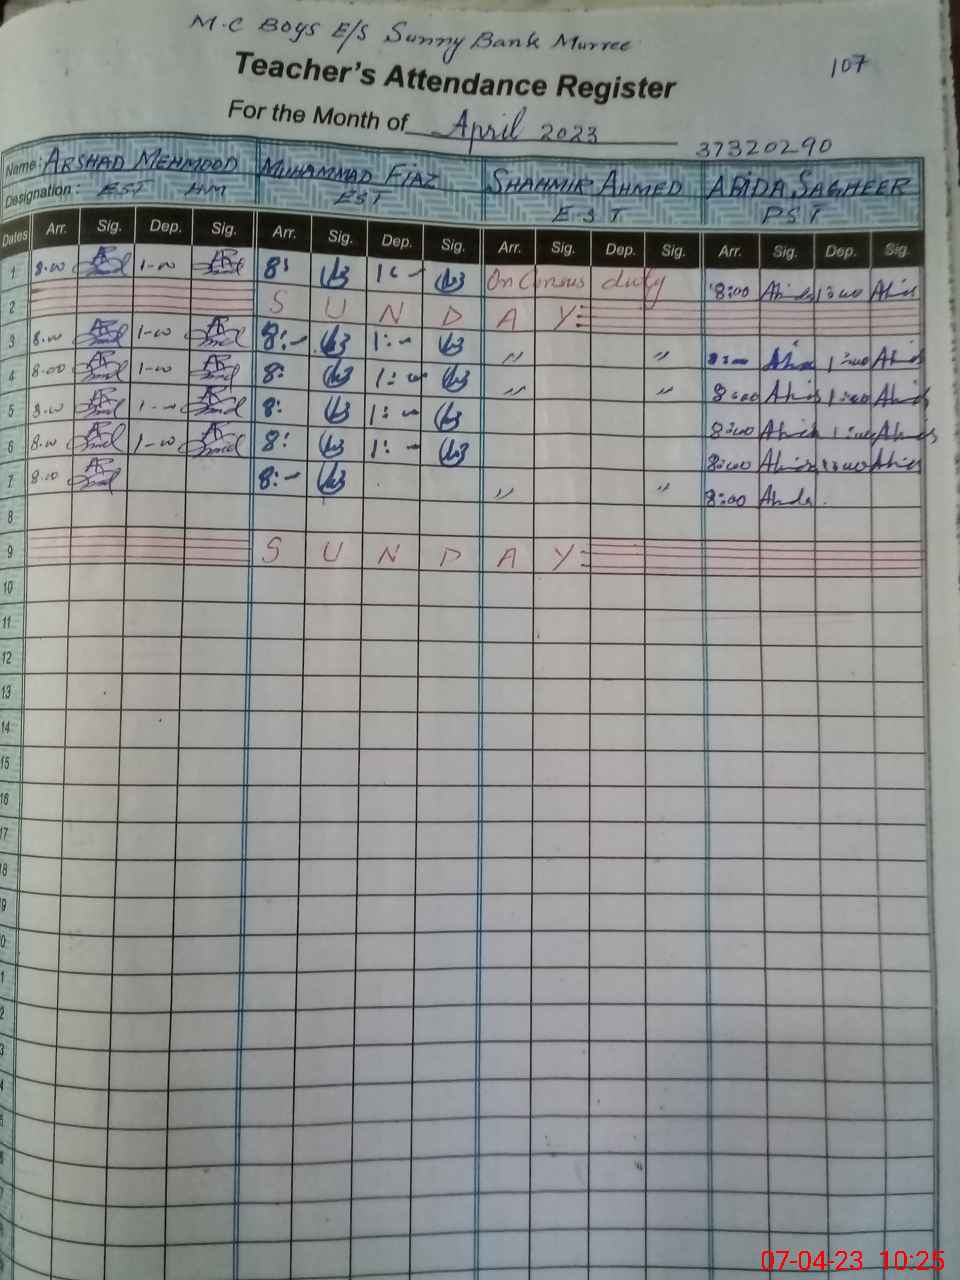 M.C Boys E/S Sunny Bank Murree
107
Teacher's Attendance Register
For the Month of April 2023
37320290
Name: ARSHAD MEHMOOD MUHAMMAD FIAZ SHAHMIR AHMED ABIDA SAGHEER
Designation: EST HM EST EST PST
Dates Arr. Sig. Dep. Sig. Arr. Sig. Dep. Sig. Arr. Sig. Dep. Sig. Arr. Sig. Dep. Sig.
1 8.00 1-00 8: On Census duty 8:00 1:00
2 S U N D A Y
3 8.00 1-00 8:- 1:- " " 1:00
4 8.00 1-00 8: 1:- " " 8:00 1:00
5 8.00 1- 8: 1:- 8:00 1:00
6 8.00 1-00 8: 1:- 8:00 1:00
7 8.00 8:- " " 8:00
8
9 S U N D A Y
10
11
12
13
14
15
16
17
18
9
0
1
2
3
4
07-04-23 10:25